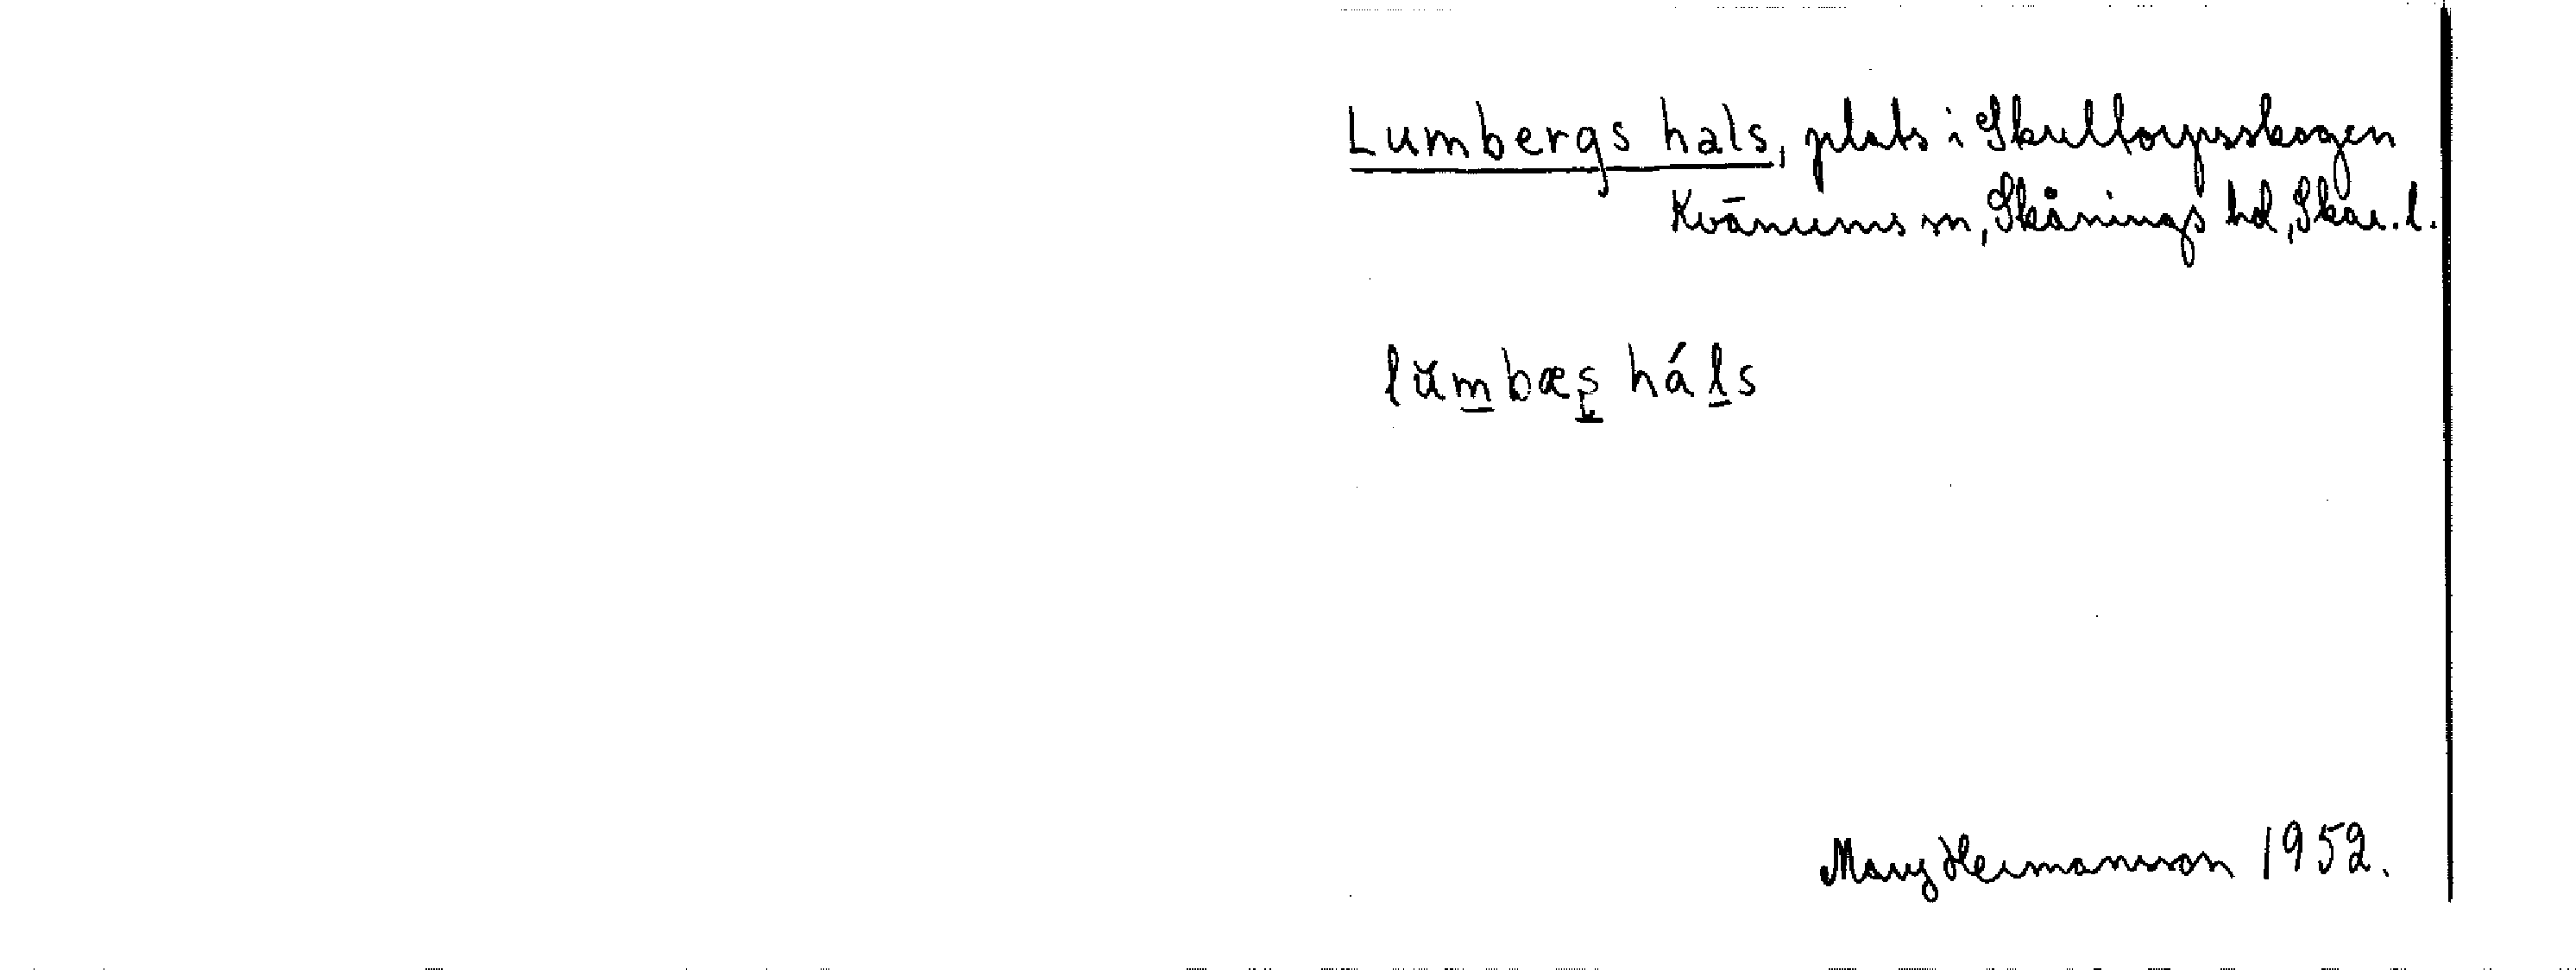 Lumbergs hals, plats i Skultorpsskogen
Kvänums sn, Skånings hd, Skar. l.
lŭm̲bæs̲ hál̲s
Mary Hermansson 1952.